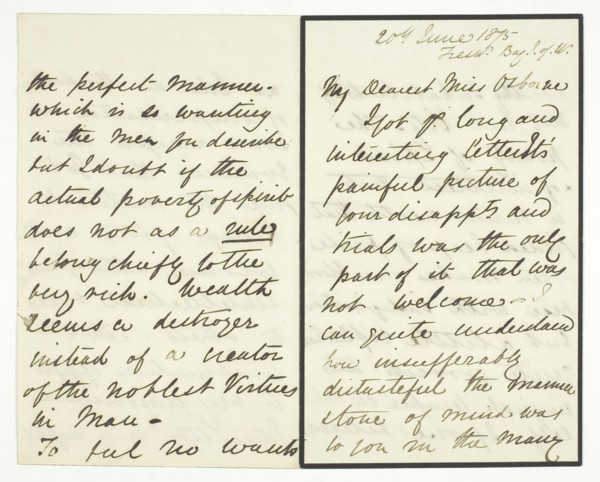 20th June 1875
Freshr. Bay I. of W.
My Dearest Miss Osborne
I got yr long and
interesting letter. Its
painful picture of
your disappts and
trials was the only
part of it that was
not welcome - I
can quite understand
how insufferably
distasteful the manner
& tone of mind was
to you in the many
the perfect manner -
which is so wanting
in the men you describe
but I doubt if the
actual poverty of spirit
does not as a rule
belong chiefly to the
very rich. Wealth
seems a destroyer
instead of a creator
of the noblest Virtues
in Man -
To feel no wants